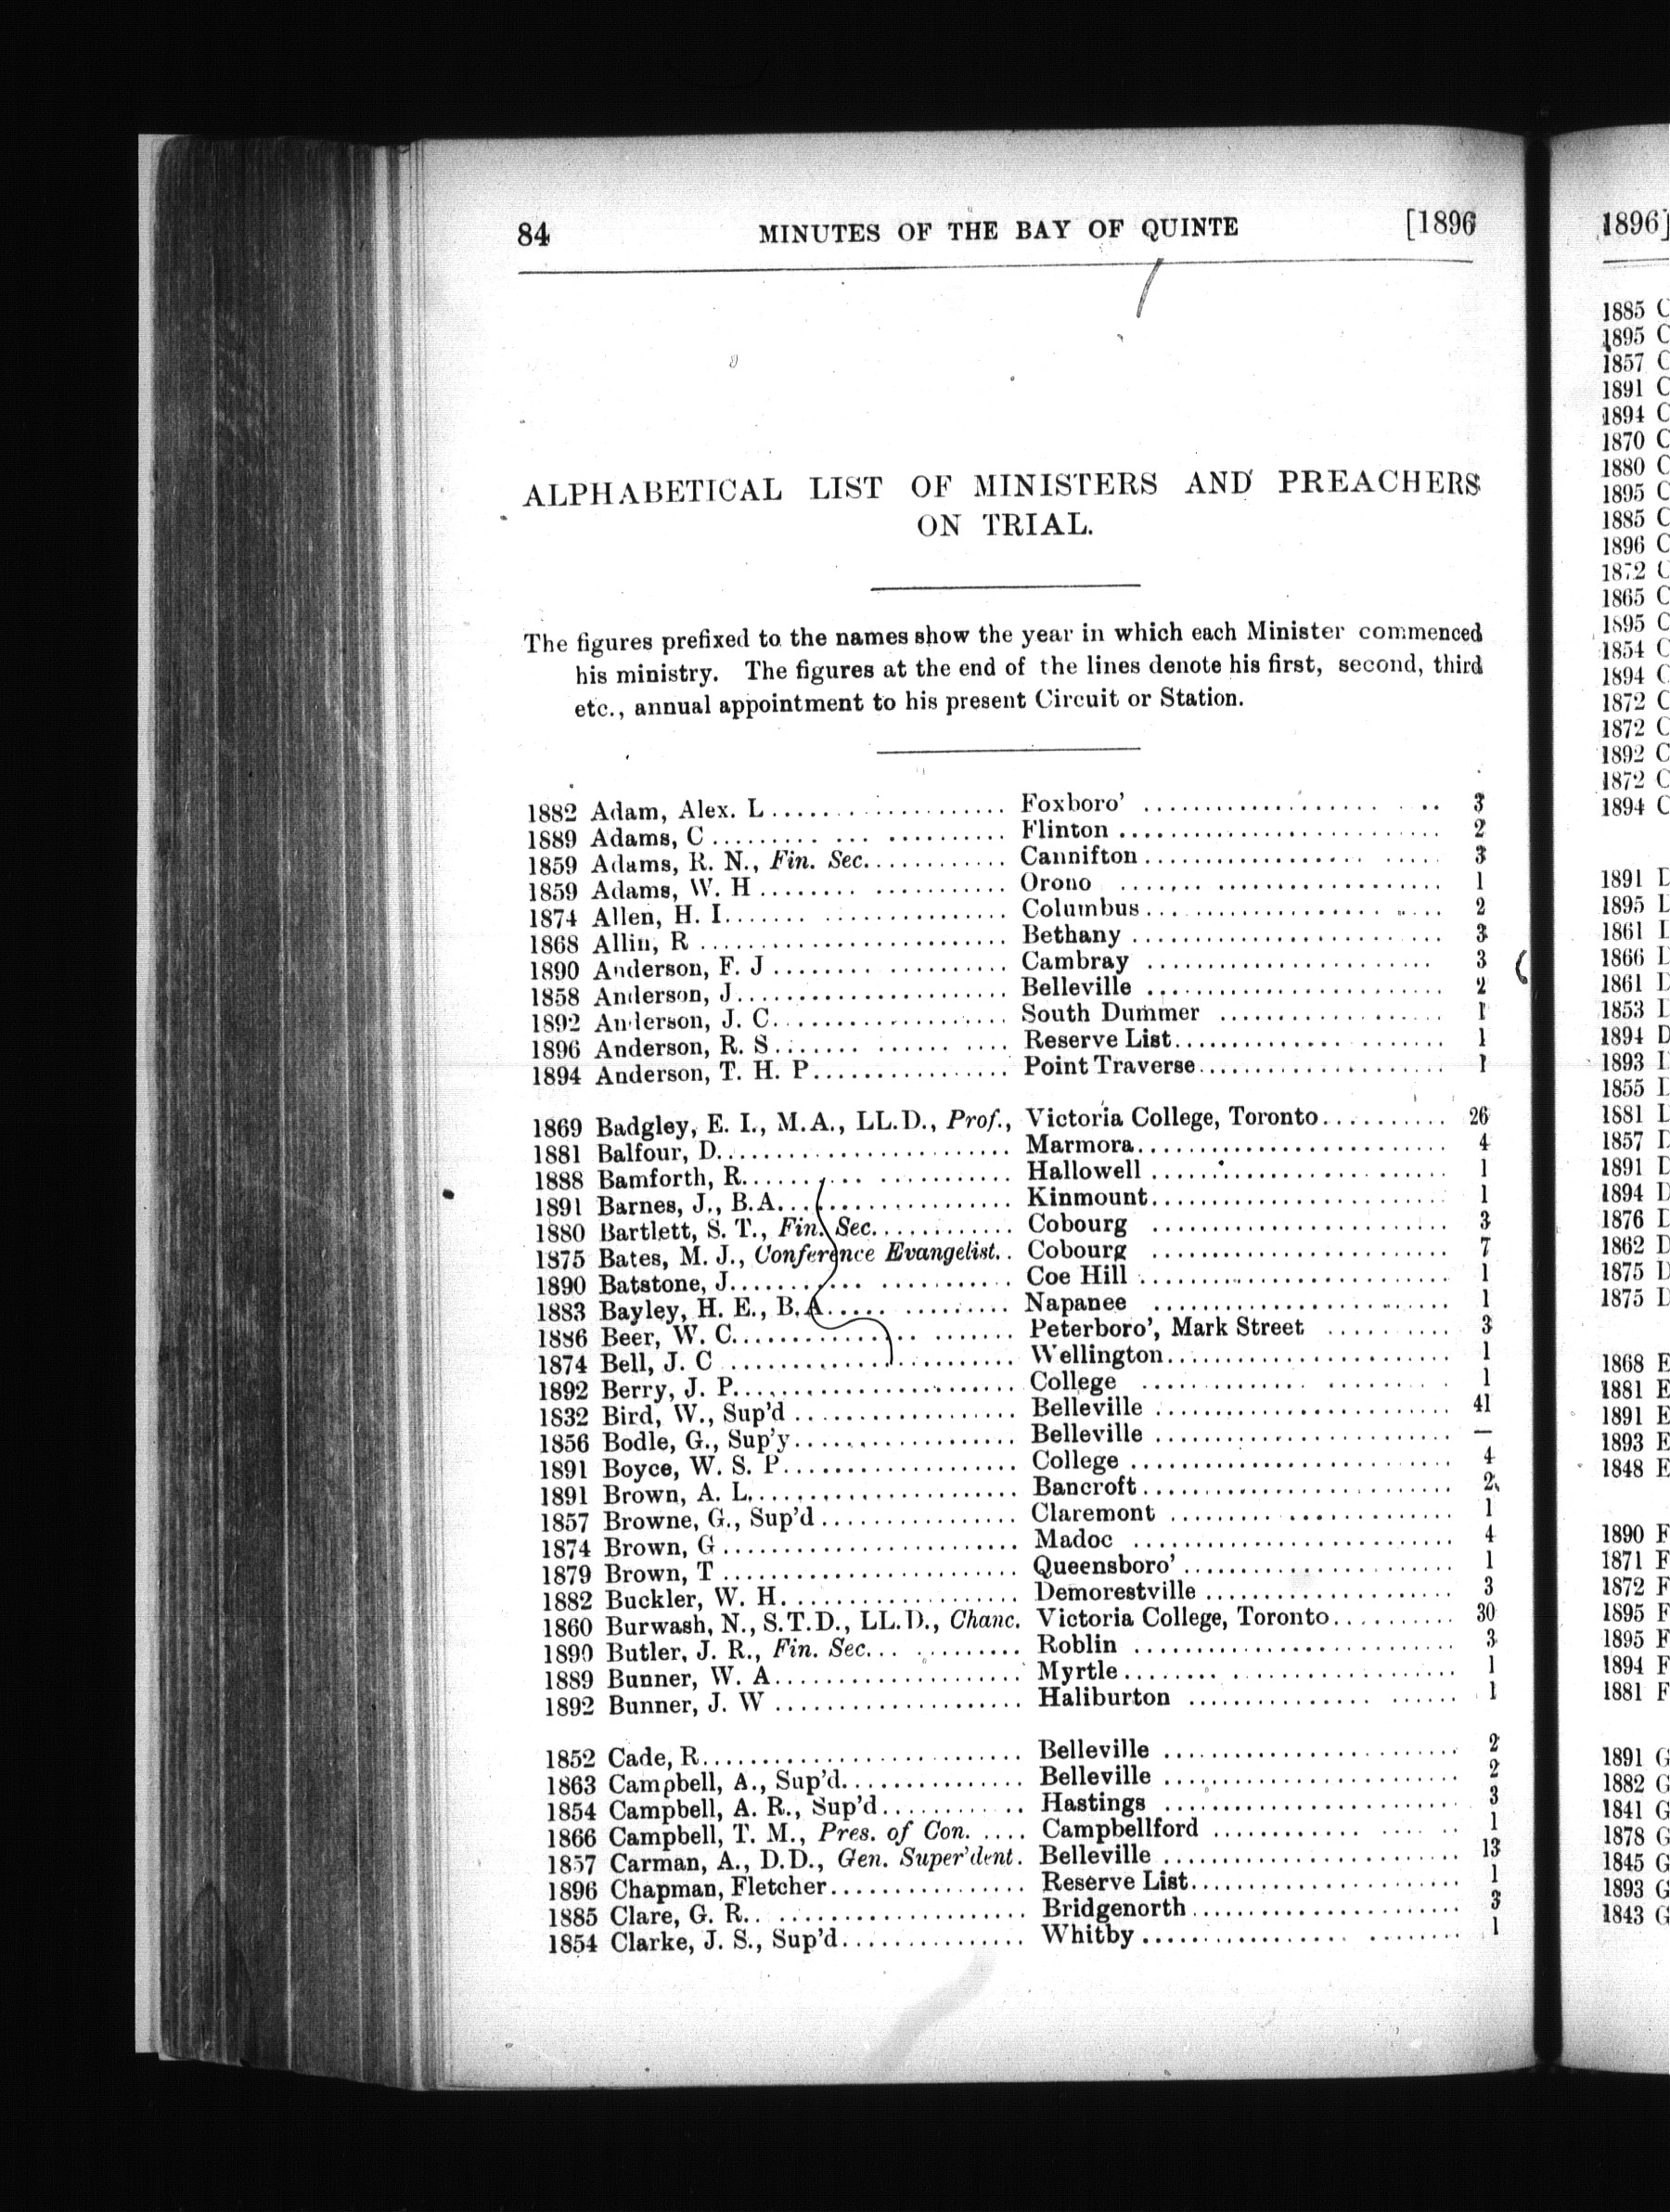 84 MINUTES OF THE BAY OF QUINTE [1896
ALPHABETICAL LIST OF MINISTERS AND PREACHERS
ON TRIAL.
The figures prefixed to the names show the year in which each Minister commenced
his ministry. The figures at the end of the lines denote his first, second, third
etc., annual appointment to his present Circuit or Station.
1882 Adam, Alex. L. Foxboro' 3
1889 Adams, C. Flinton 2
1859 Adams, R. N., Fin. Sec. Cannifton 3
1859 Adams, W. H. Orono 1
1874 Allen, H. I. Columbus 2
1868 Allin, R. Bethany 3
1890 Anderson, F. J. Cambray 3
1858 Anderson, J. Belleville 2
1892 Anderson, J. C. South Dummer 1
1896 Anderson, R. S. Reserve List 1
1894 Anderson, T. H. P. Point Traverse 1
1869 Badgley, E. I., M.A., LL.D., Prof., Victoria College, Toronto 26
1881 Balfour, D. Marmora 4
1888 Bamforth, R. Hallowell 1
1891 Barnes, J., B.A. Kinmount 1
1880 Bartlett, S. T., Fin. Sec. Cobourg 3
1875 Bates, M. J., Conference Evangelist. Cobourg 7
1890 Batstone, J. Coe Hill 1
1883 Bayley, H. E., B.A. Napanee 1
1886 Beer, W. C. Peterboro', Mark Street 3
1874 Bell, J. C. Wellington 1
1892 Berry, J. P. College 1
1832 Bird, W., Sup'd Belleville 41
1856 Bodle, G., Sup'y Belleville —
1891 Boyce, W. S. P. College 4
1891 Brown, A. L. Bancroft 2
1857 Browne, G., Sup'd Claremont 1
1874 Brown, G. Madoc 4
1879 Brown, T. Queensboro' 1
1882 Buckler, W. H. Demorestville 3
1860 Burwash, N., S.T.D., LL.D., Chanc. Victoria College, Toronto 30
1890 Butler, J. R., Fin. Sec. Roblin 3
1889 Bunner, W. A. Myrtle 1
1892 Bunner, J. W. Haliburton 1
1852 Cade, R. Belleville 2
1863 Campbell, A., Sup'd. Belleville 2
1854 Campbell, A. R., Sup'd Hastings 3
1866 Campbell, T. M., Pres. of Con. Campbellford 1
1857 Carman, A., D.D., Gen. Super'dent. Belleville 13
1896 Chapman, Fletcher Reserve List 1
1885 Clare, G. R. Bridgenorth 3
1854 Clarke, J. S., Sup'd Whitby 1
1896]
1885 C
1895 C
1857 C
1891 C
1894 C
1870 C
1880 C
1895 C
1885 C
1896 C
1872 C
1865 C
1895 C
1854 C
1894 C
1872 C
1872 C
1892 C
1872 C
1894 C
1891 D
1895
1861
1866
1861
1853
1894 D
1893
1855
1881
1857
1891 D
1894 D
1876 D
1862 D
1875 D
1875
1868 E
1881 E
1891 E
1893 E
1848 E
1890 F
1871 F
1872 F
1895 F
1895 F
1894 F
1881 F
1891 G
1882 G
1841 G
1878 G
1845 G
1893 G
1843 G